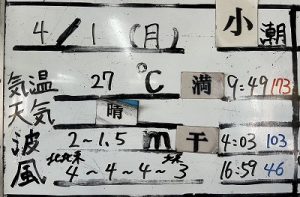 4/1(月) 小潮
気温 27℃ 満 9:49 173
天気 晴
波 2~1.5m 干 4:03 103
風 北北東 4~4~4~3 北東 16:59 46